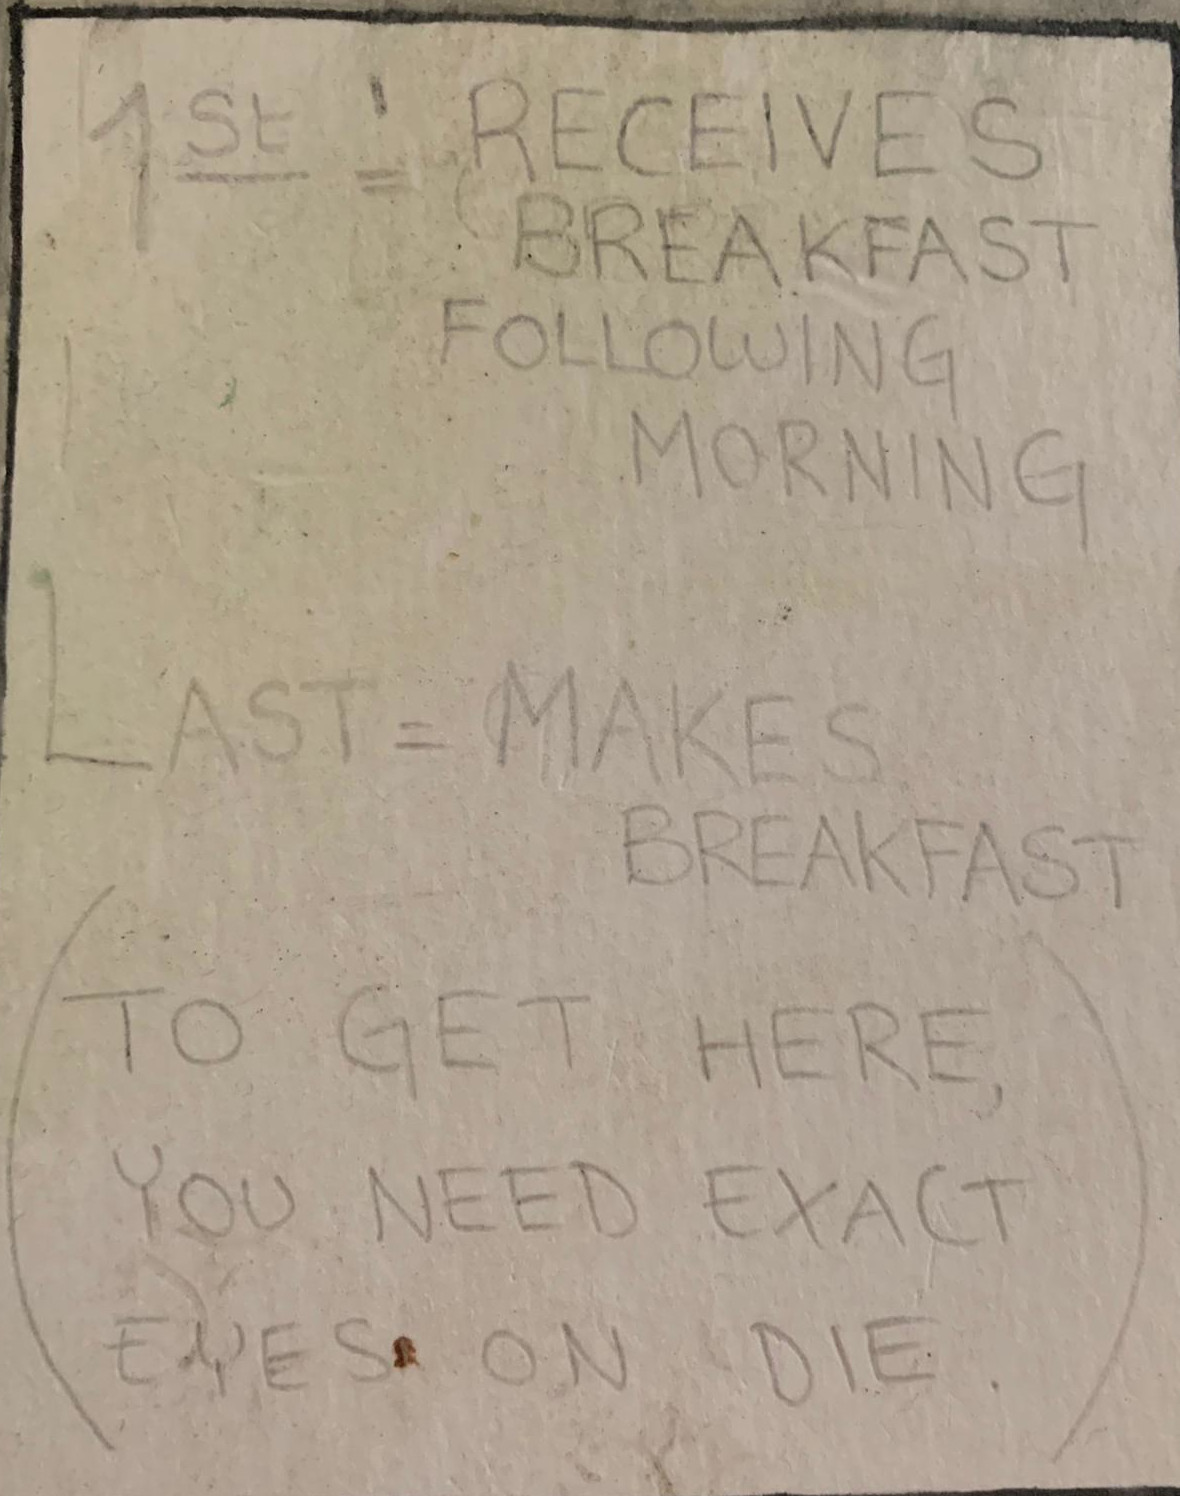 1st = RECEIVES
BREAKFAST
FOLLOWING
MORNING
LAST = MAKES
BREAKFAST
(TO GET HERE,
YOU NEED EXACT
EYES ON DIE.)